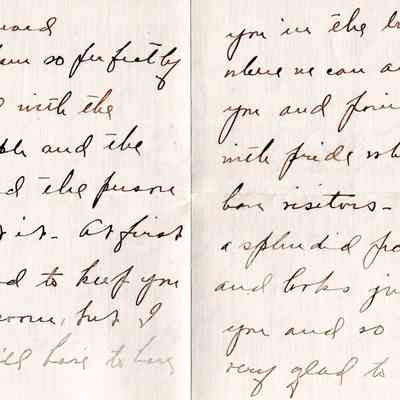 so perfectly
with the
and the
d the person
it - At first
d to keep you
room, but I
have to have
you in the
where we can
you and poin
with pride wh
have visitors -
a splendid
and looks ju
you and so
very glad to